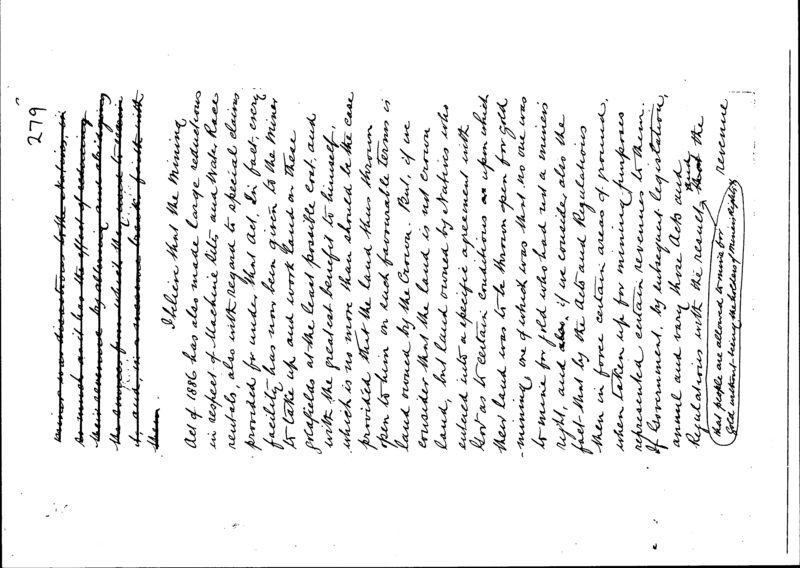 279
miner was disastrous to the natives, in
so much as it has the effect of reducing
their revenue by allowing
the
it, and, is
them.
I believe that the Mining
Act of 1886 has also made large reductions
in respect of Machine Sites and Water Race
rentals, also with regard to special claims
provided for under that Act. In fact, every
facility has now been given to the Miner
to take up and work land on these
goldfields at the least possible cost, and
with the greatest benefit to himself,
which is no more than should be the case
provided that the land thus thrown
open to him on such favourable terms is
land owned by the Crown. But, if we
consider that the land is not crown
land, but land owned by Natives who
entered into a specific agreement with
Govt as to certain conditions upon which
their land was to be thrown open for gold
mining one of which was that no one was
to mine for gold who had not a miner's
right, and also, if we consider also the
fact that by the Acts and Regulations
then in force certain areas of ground,
when taken up for mining purposes
represented certain revenues to them.
If Government, by subsequent legislation,
annul and vary those Acts and
Regulations with the result that the
that people are allowed to mine for revenue
Gold without being the holders of Miners Rights &